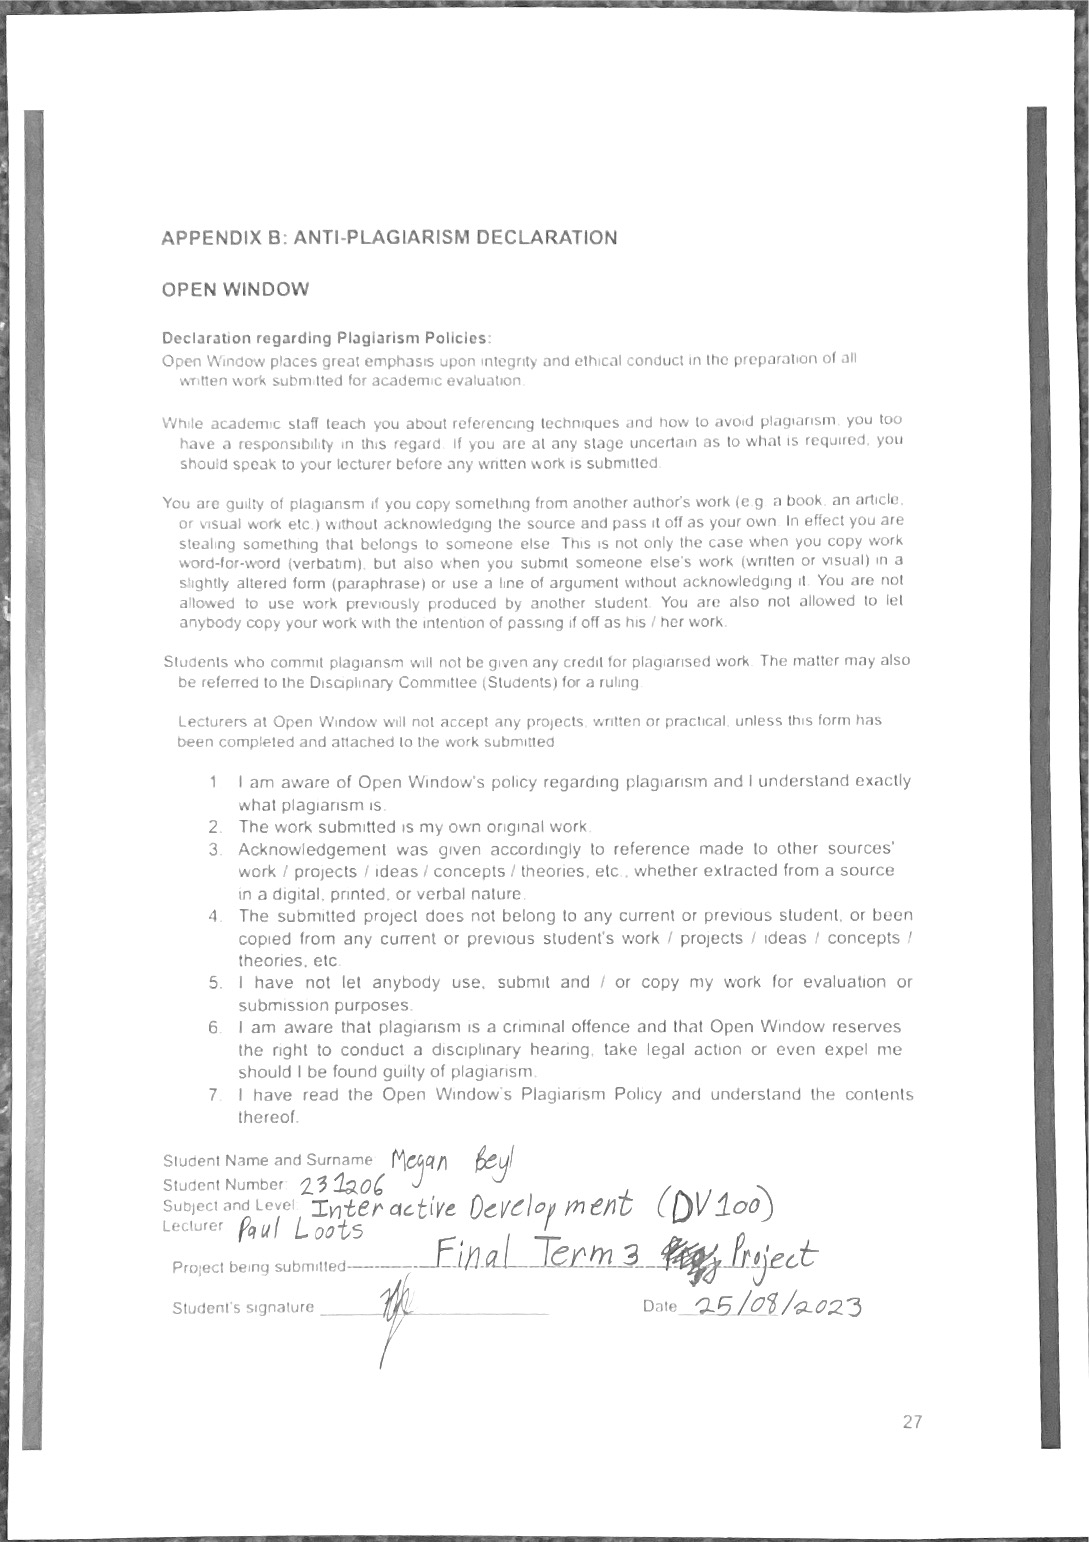 APPENDIX B: ANTI-PLAGIARISM DECLARATION
OPEN WINDOW
Declaration regarding Plagiarism Policies:
Open Window places great emphasis upon integrity and ethical conduct in the preparation of all
written work submitted for academic evaluation.
While academic staff teach you about referencing techniques and how to avoid plagiarism, you too
have a responsibility in this regard. If you are at any stage uncertain as to what is required, you
should speak to your lecturer before any written work is submitted.
You are guilty of plagiarism if you copy something from another author's work (e.g. a book, an article,
or visual work etc.) without acknowledging the source and pass it off as your own. In effect you are
stealing something that belongs to someone else. This is not only the case when you copy work
word-for-word (verbatim), but also when you submit someone else's work (written or visual) in a
slightly altered form (paraphrase) or use a line of argument without acknowledging it. You are not
allowed to use work previously produced by another student. You are also not allowed to let
anybody copy your work with the intention of passing if off as his / her work.
Students who commit plagiarism will not be given any credit for plagiarised work. The matter may also
be referred to the Disciplinary Committee (Students) for a ruling.
Lecturers at Open Window will not accept any projects, written or practical, unless this form has
been completed and attached to the work submitted
1 I am aware of Open Window's policy regarding plagiarism and I understand exactly
what plagiarism is.
2. The work submitted is my own original work.
3. Acknowledgement was given accordingly to reference made to other sources'
work / projects / ideas / concepts / theories, etc., whether extracted from a source
in a digital, printed, or verbal nature.
4. The submitted project does not belong to any current or previous student, or been
copied from any current or previous student's work / projects / ideas / concepts /
theories, etc.
5. I have not let anybody use, submit and / or copy my work for evaluation or
submission purposes.
6. I am aware that plagiarism is a criminal offence and that Open Window reserves
the right to conduct a disciplinary hearing, take legal action or even expel me
should I be found guilty of plagiarism.
7. I have read the Open Window's Plagiarism Policy and understand the contents
thereof.
Student Name and Surname: Megan Beyl
Student Number: 231206
Subject and Level: Interactive Development (DV100)
Lecturer: Paul Loots
Project being submitted Final Term 3 Project
Student's signature
Date 25/08/2023
27